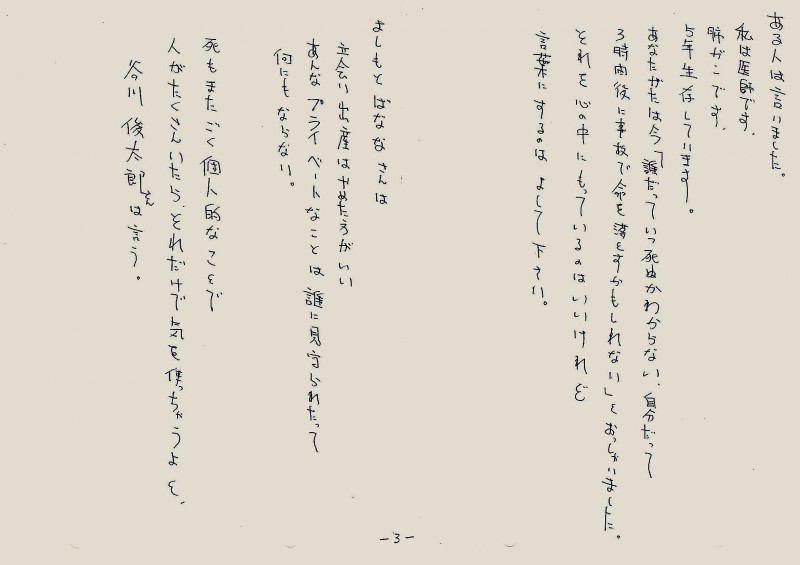 ある人は言いました。
私は医師です。
肺がンです。
5年生存しています。
あなたがたは今、誰だっていつ死ぬかわからない、自分だって
3時間後に事故で命を落とすかもしれない」とおっしゃいました。
それを心の中にもっているのはいいけれど
言葉にするのはよして下さい。
よしもとばななさんは
立会い出産はやめた方がいい
あんなプライベートなことは誰に見守られたって
何にもならない。
死もまたごく個人的なことで
人がたくさんいたら、それだけで気を使っちゃうよと、
谷川俊太郎さんは言う。
-3-